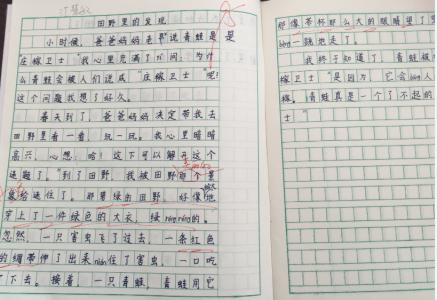 田野里的发现
小时候，爸爸妈妈老和说青蛙是
"庄稼卫士"我心里充满了ní问，为什
么青蛙会被人们说成"庄稼卫士"呢！
这个问题我想了好久。
春天到了，爸爸妈妈决定带我去
田野里看一看，玩一玩。我心里暗暗
高兴，心想：哈！这下可以解开这个
谜题了。"到了田野，我被田野的景
给迷住了。那翠绿的田野，好像地
穿上了一件绿色的大衣，绿
忽然，一只害虫飞了过去，一条红色
的绸带伸了出来nián住了害虫，一口吃
下去。接着，一只青蛙，青蛙用它
那像茶杯那么大的眼睛望了
跳走了。
我终于知道了，青蛙被
稼卫士"是因为，它会
稼。青蛙真是一个了不起的
士"